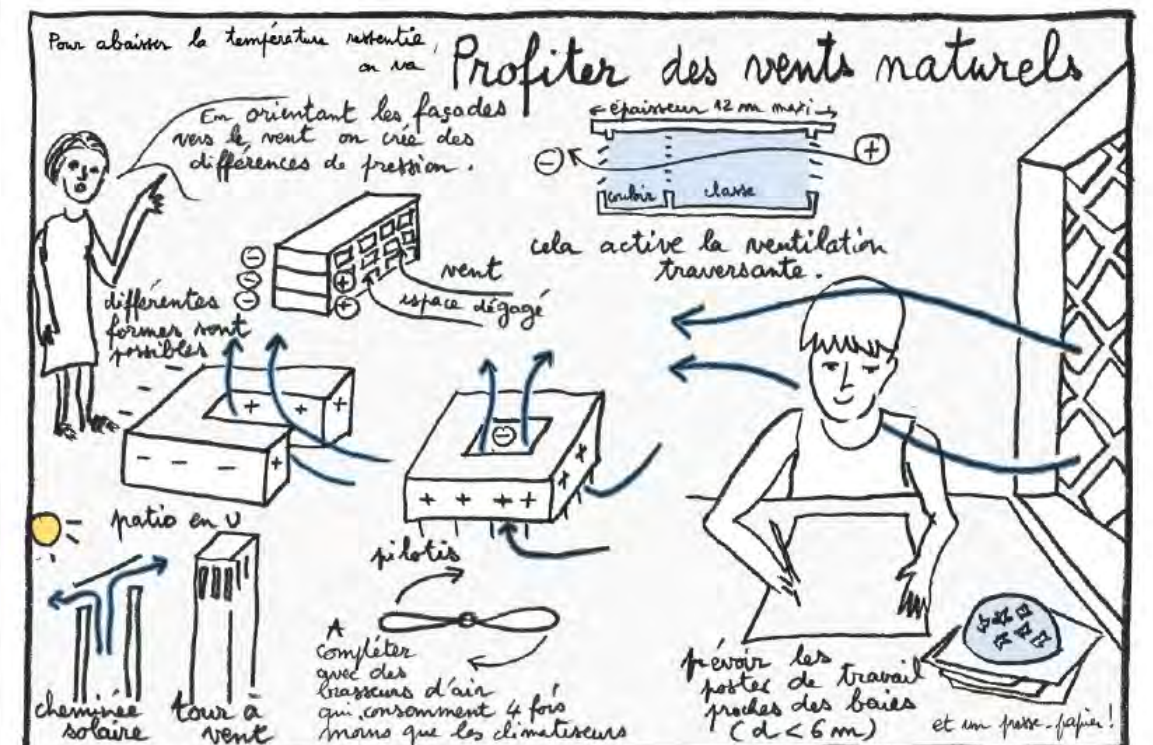 Pour abaisser la température ressentie,
on va
Profiter des vents naturels
En orientant les façades
vers le vent on crée des
différences de pression.
← épaisseur 12 m maxi →
-
+
couloir
classe
cela active la ventilation
traversante.
-
-
-
+
+
vent
espace dégagé
différentes
formes sont
possibles
- - -
+ + +
- - - +
patio en U
-
+ + + +
+ + +
pilotis
cheminée
solaire
tour à
vent
A
compléter
avec des
brasseurs d'air
qui consomment 4 fois
moins que les climatiseurs
prévoir les
postes de travail
proches des baies
(d < 6 m)
et un presse-papier!